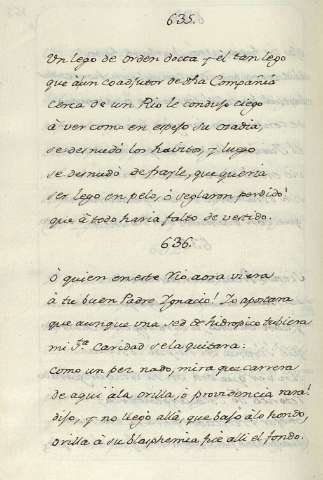 635.
Un lego de orden docta y el tan lego
que àun coadjutor de dha Compañia
cerca de un Rio le condujo ciego
à ver como en espejo su
se desnudò los havitos, y luego
se desnudò de frayle, que queria
ser lego en pelo, ò seglaron perdido!
que à todo haria falto de vestido.
636.
ò quien en este Rio aora viera
à tu buen Padre Ignacio! Yo apostara
que aunque una sed de hidropico tubiera
mi Sª Caridad se la quitara:
como un pez nadò, mira que carrera
de aqui àla orilla, ò providencia rara!
dijo, y no llegò allà, que bajo à lo hondo,
orilla à su blasphemia fue alli el fondo.